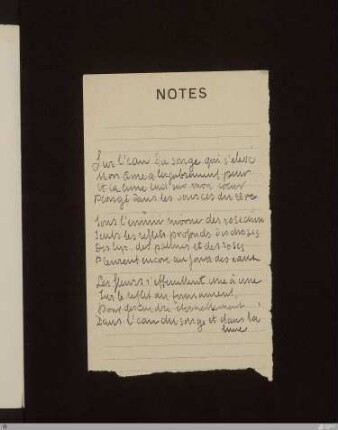 NOTES
Sur l'eau du songe qui s'élève
Mon âme a lugubrement peur
Et la lune luit sur mon coeur
Plongé dans les sources du rêve
Sous l'ennui morne des roseaux
Seuls les reflets profonds des choses
Des lys, des palmes et des roses
Pleurent encore au fond des eaux
Les fleurs s'effeuillent une à une
Sur le reflet du firmament
Pour descendre éternellement
Dans l'eau du songe et dans la
lune